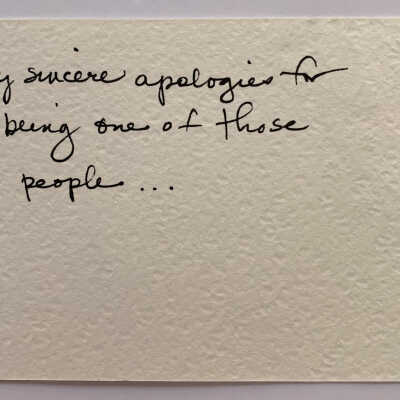 sincere apologies for
being one of those
people...